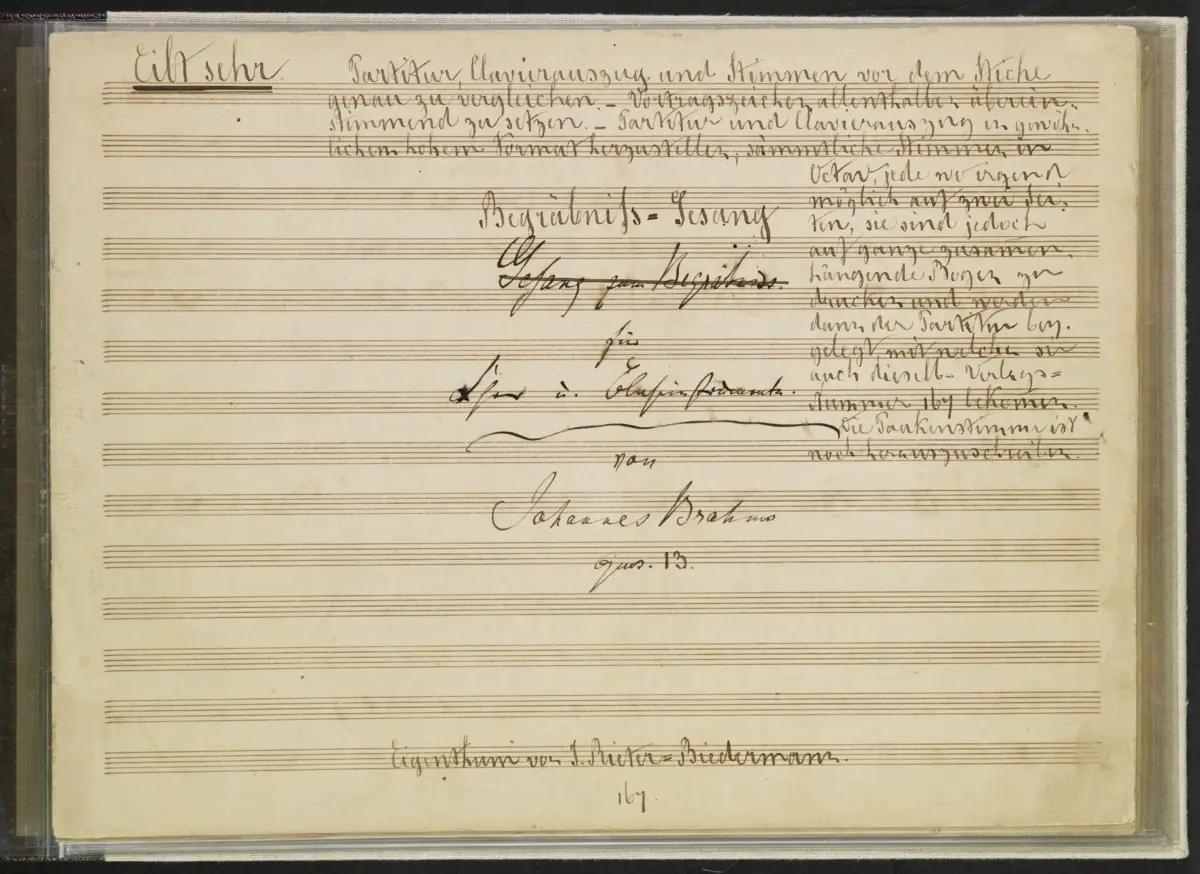 Eilt sehr.
Partitur, Clavierauszug und Stimmen vor dem Stiche
genau zu vergleichen. – Vortragszeichen allenthalben überein-
stimmend zu setzen. – Partitur und Clavierauszug in gewöhn-
lichem hohem Format herzustellen, sämmtliche Stimmen in
Octav, jede wo irgend
möglich auf zwei Sei-
ten, sie sind jedoch
auf ganze zusamen-
hängende Bogen zu
drucken und werden
dann der Partitur bey-
gelegt, mit welcher sie
auch dieselbe Verlags-
Nummer 167 bekomen.
Die Paukenstimme ist
noch herauszuschreiben.
Begräbniss-Gesang
Gesang zum Begräbniss.
für
Chor u. Blasinstrumente.
von
Johannes Brahms
opus. 13.
Eigenthum von J. Rieter-Biedermann.
167.